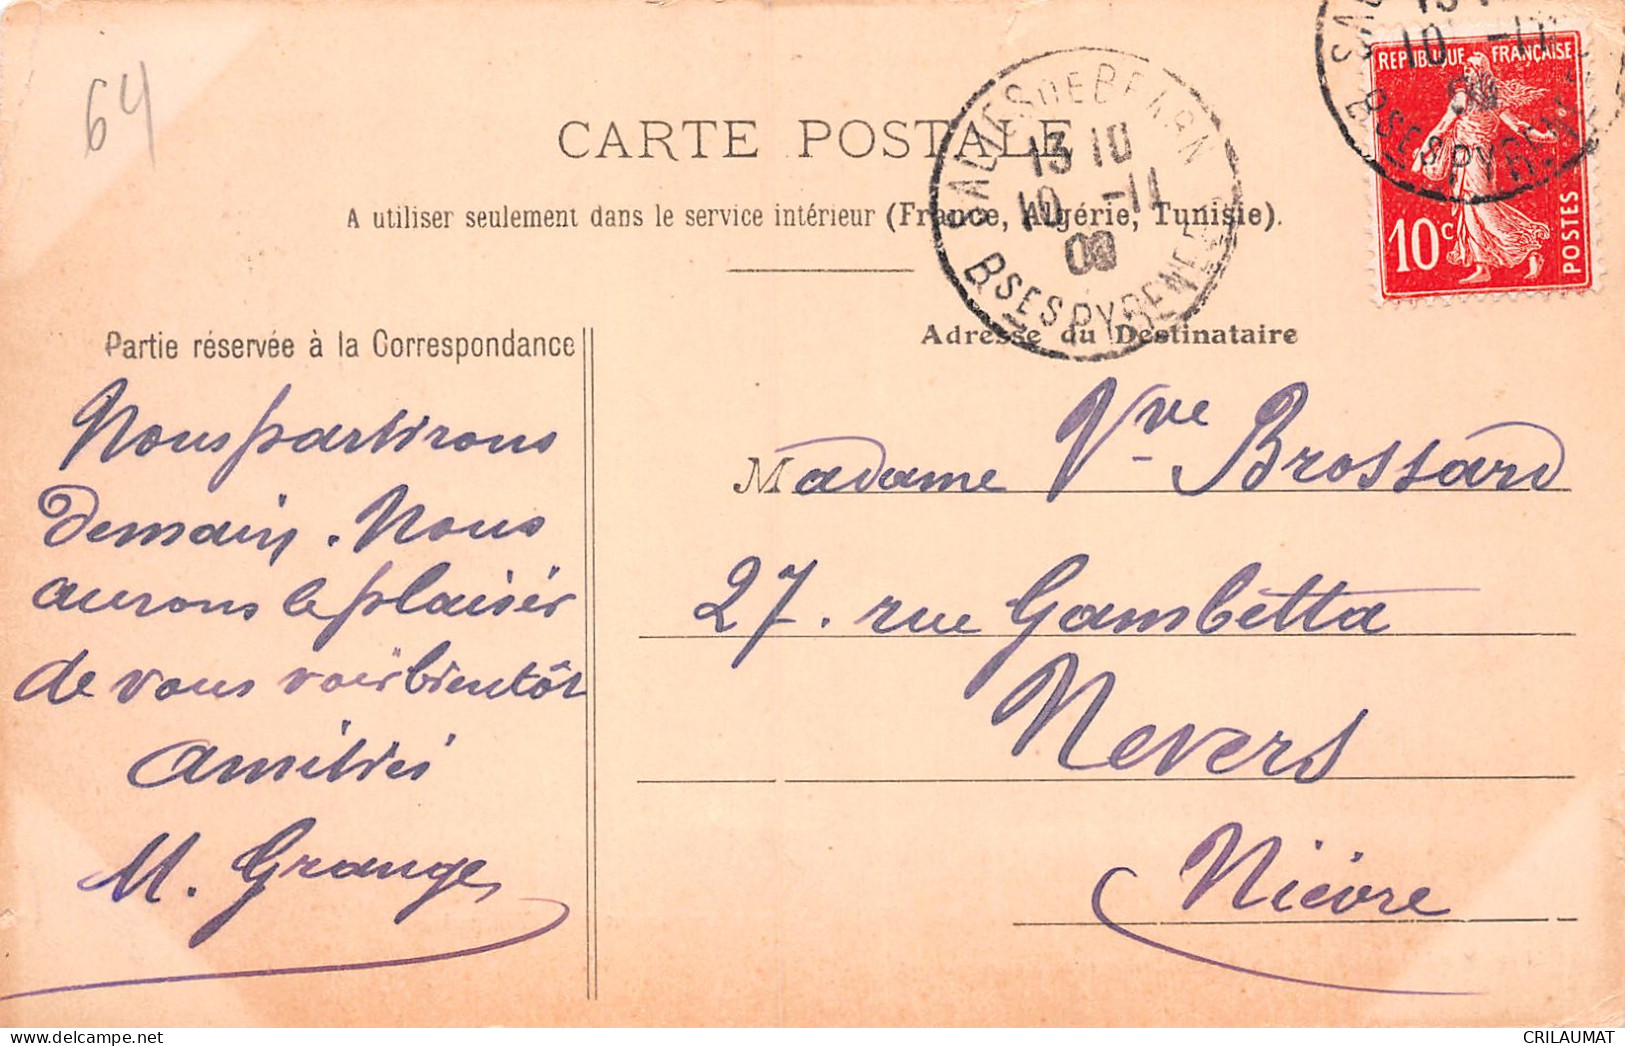 64
CARTE POSTALE
A utiliser seulement dans le service intérieur (France, Algérie, Tunisie).
SALIES DE BEARN
13 10
10 -11
BSES PYRENEES
REPUBLIQUE FRANÇAISE
10c
POSTES
10 -11
BSES PYRENEES
Partie réservée à la Correspondance
Nous partirons
demain. Nous
aurons le plaisir
de vous voir bientôt
Amitiés
M. Grange
Adresse du Destinataire
Madame Vve Brossard
27. rue Gambetta
Nevers
Nièvre
CRILAUMAT